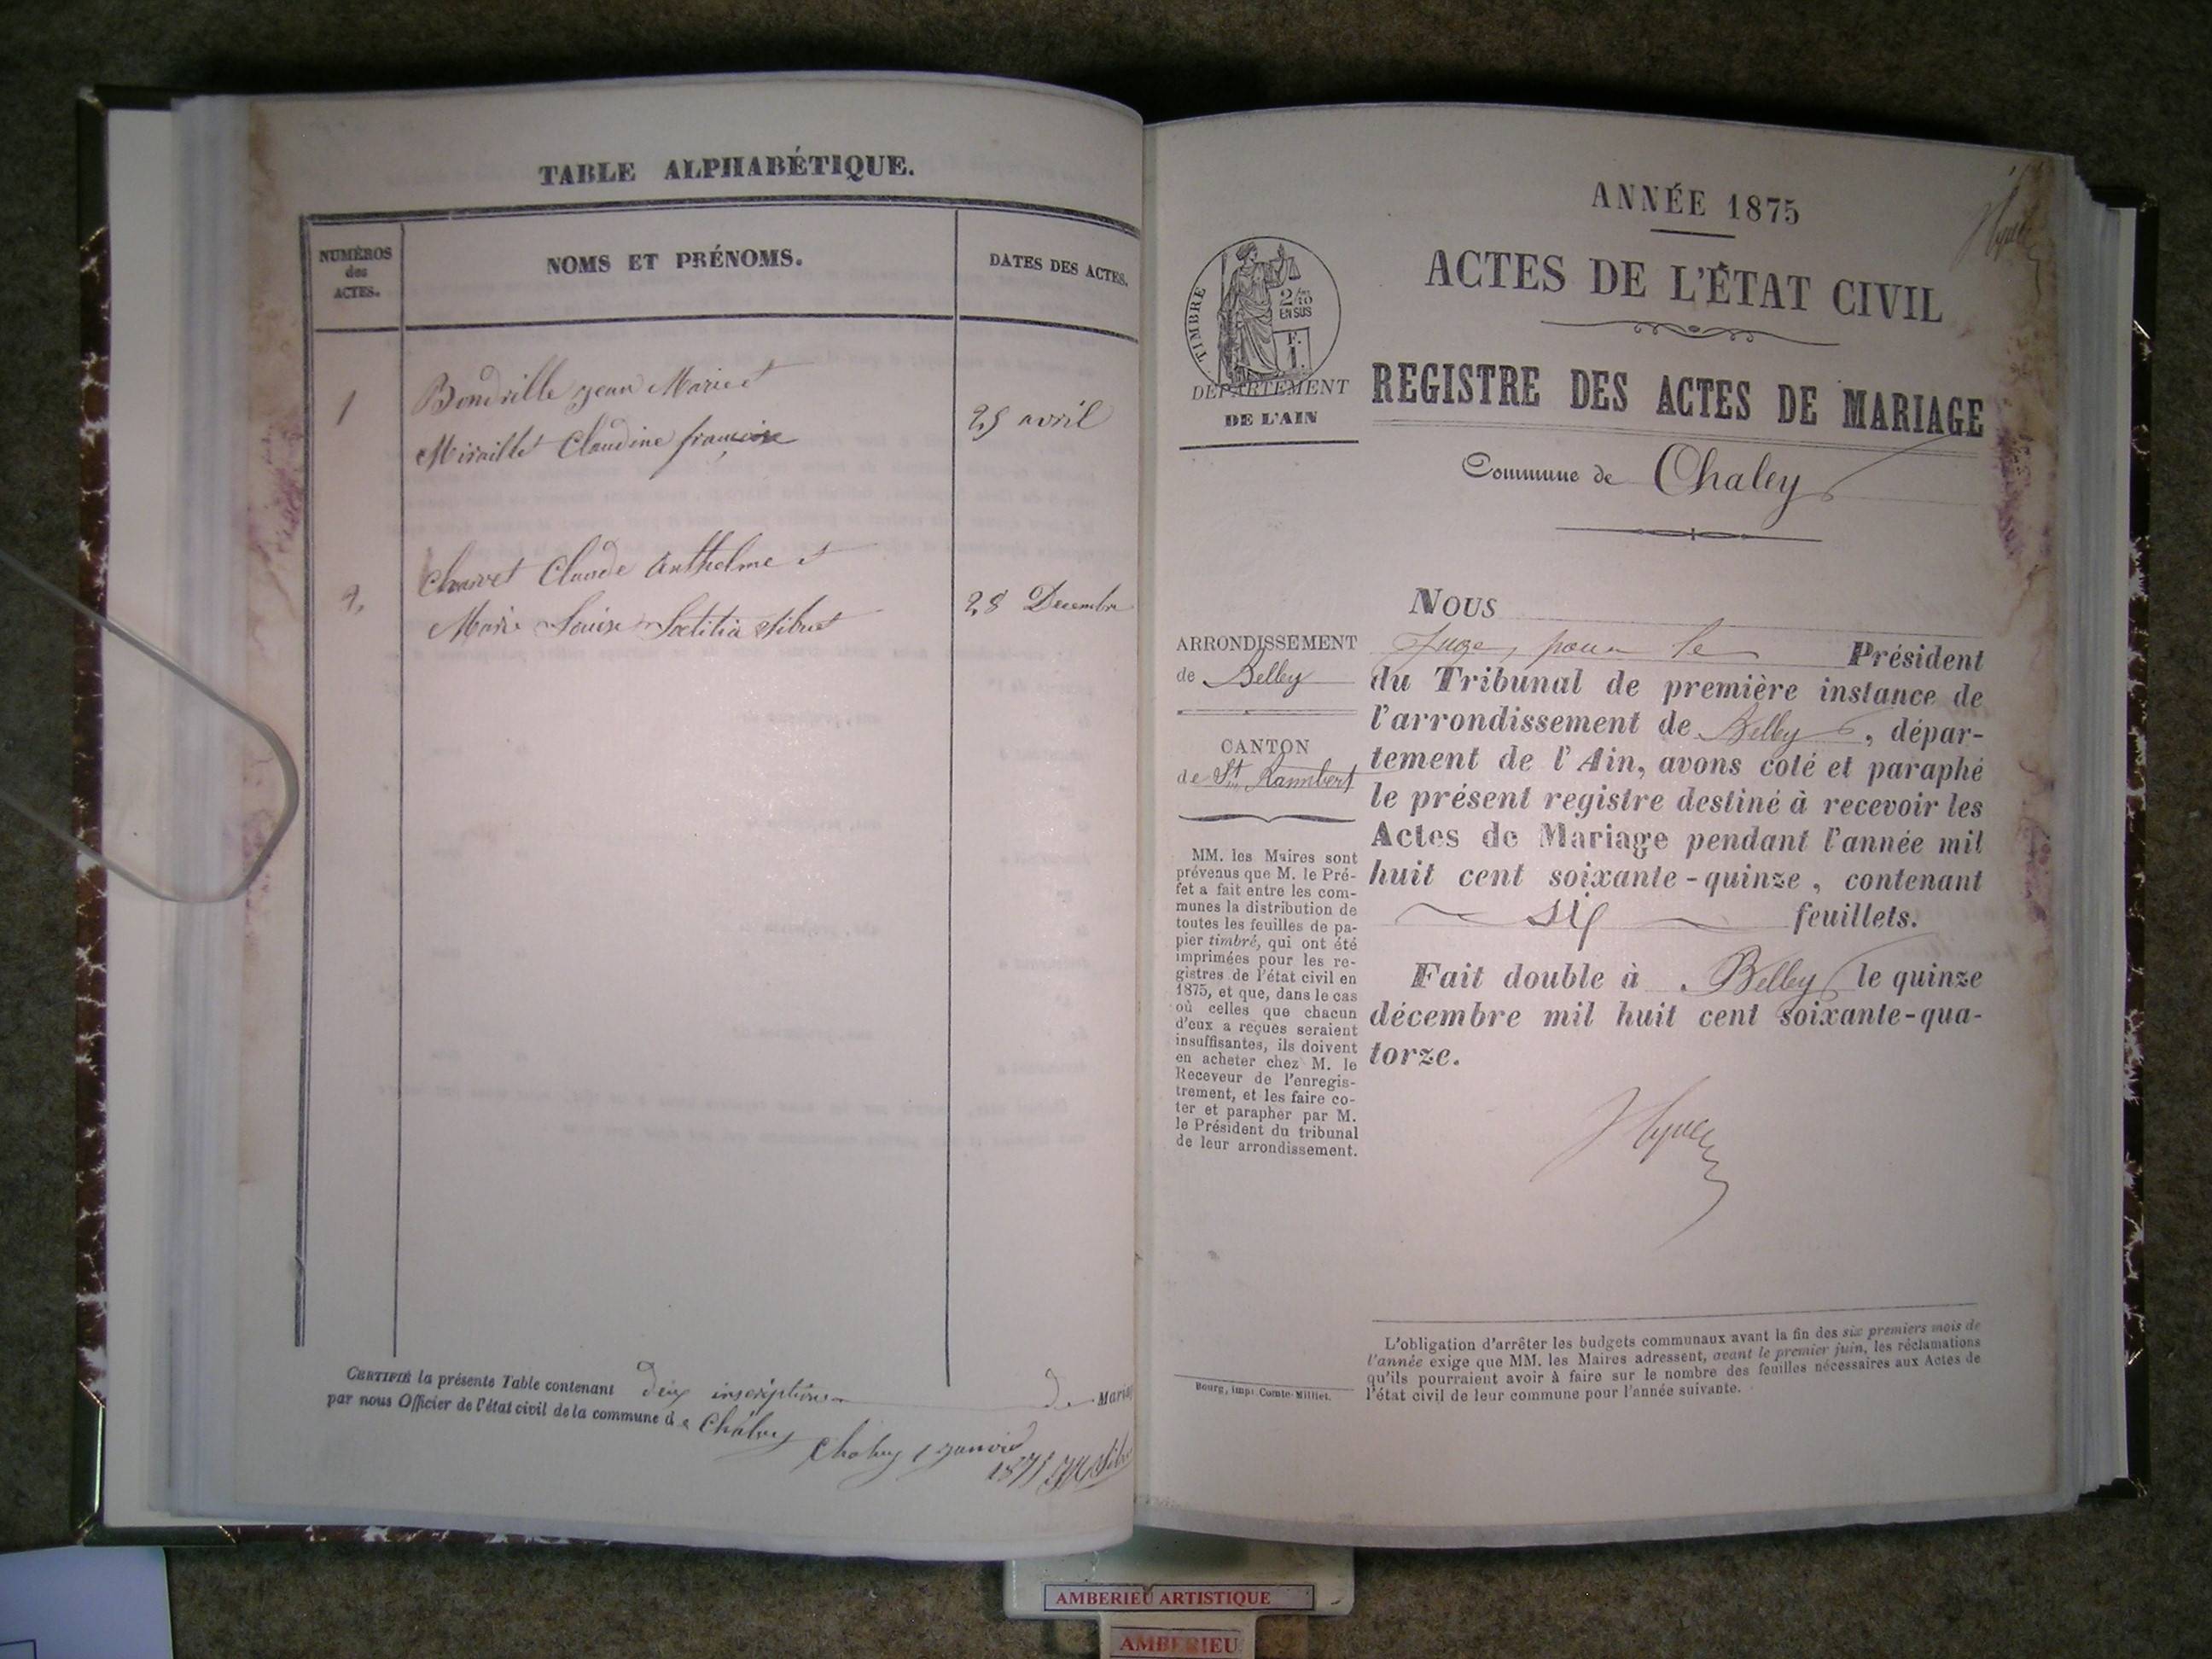 TABLE ALPHABÉTIQUE.
NUMÉROS
des
ACTES.
NOMS ET PRÉNOMS.
DATES DES ACTES.
1
Bondrille Jean Marie et
Miraillet Claudine françoise
25 avril
2,
Charvet Claude Anthelme et
Marie Louise Lœtitia Sibuet
28 Decembre
CERTIFIÉ la présente Table contenant deux inscriptions de Mariag
par nous Officier de l'état civil de la commune de Chaley
Chaley 1 janvier
ANNÉE 1875
ACTES DE L'ÉTAT CIVIL
REGISTRE DES ACTES DE MARIAGE
Commune de Chaley
TIMBRE
2/10
EN SUS
F.
1.
DÉPARTEMENT
DE L'AIN
ARRONDISSEMENT
de Belley
CANTON
de St Rambert
MM. les Maires sont
prévenus que M. le Pré-
fet a fait entre les com-
munes la distribution de
toutes les feuilles de pa-
pier timbré, qui ont été
imprimées pour les re-
gistres de l'état civil en
1875, et que, dans le cas
où celles que chacun
d'eux a reçues seraient
insuffisantes, ils doivent
en acheter chez M. le
Receveur de l'enregis-
trement, et les faire co-
ter et parapher par M.
le Président du tribunal
de leur arrondissement.
Bourg, impr. Comte-Milliet.
NOUS
Juge, pour le Président
du Tribunal de première instance de
l'arrondissement de Belley, dépar-
tement de l'Ain, avons coté et paraphé
le présent registre destiné à recevoir les
Actes de Mariage pendant l'année mil
huit cent soixante-quinze, contenant
six feuillets.
Fait double à Belley le quinze
décembre mil huit cent soixante-qua-
torze.
L'obligation d'arrêter les budgets communaux avant la fin des six premiers mois de
l'année exige que MM. les Maires adressent, avant le premier juin, les réclamations
qu'ils pourraient avoir à faire sur le nombre des feuilles nécessaires aux Actes de
l'état civil de leur commune pour l'année suivante.
AMBERIEU ARTISTIQUE
AMBERIEU